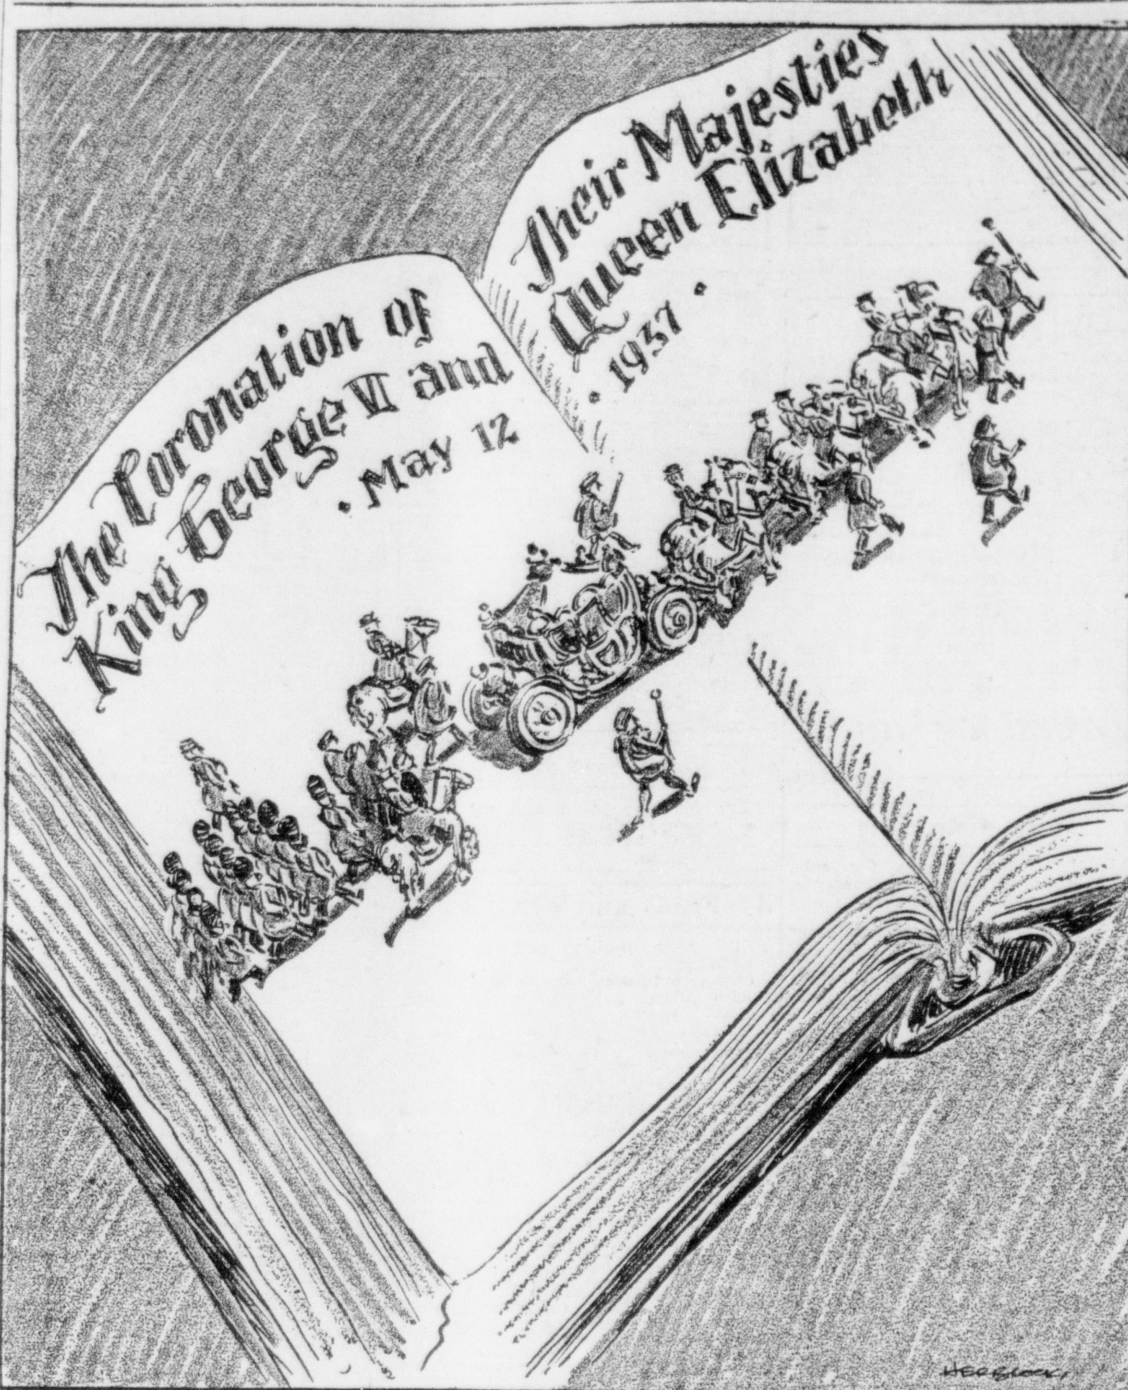 The Coronation of Their Majesties
King George VI and Queen Elizabeth
• May 12 • 1937 •
HERBLOCK